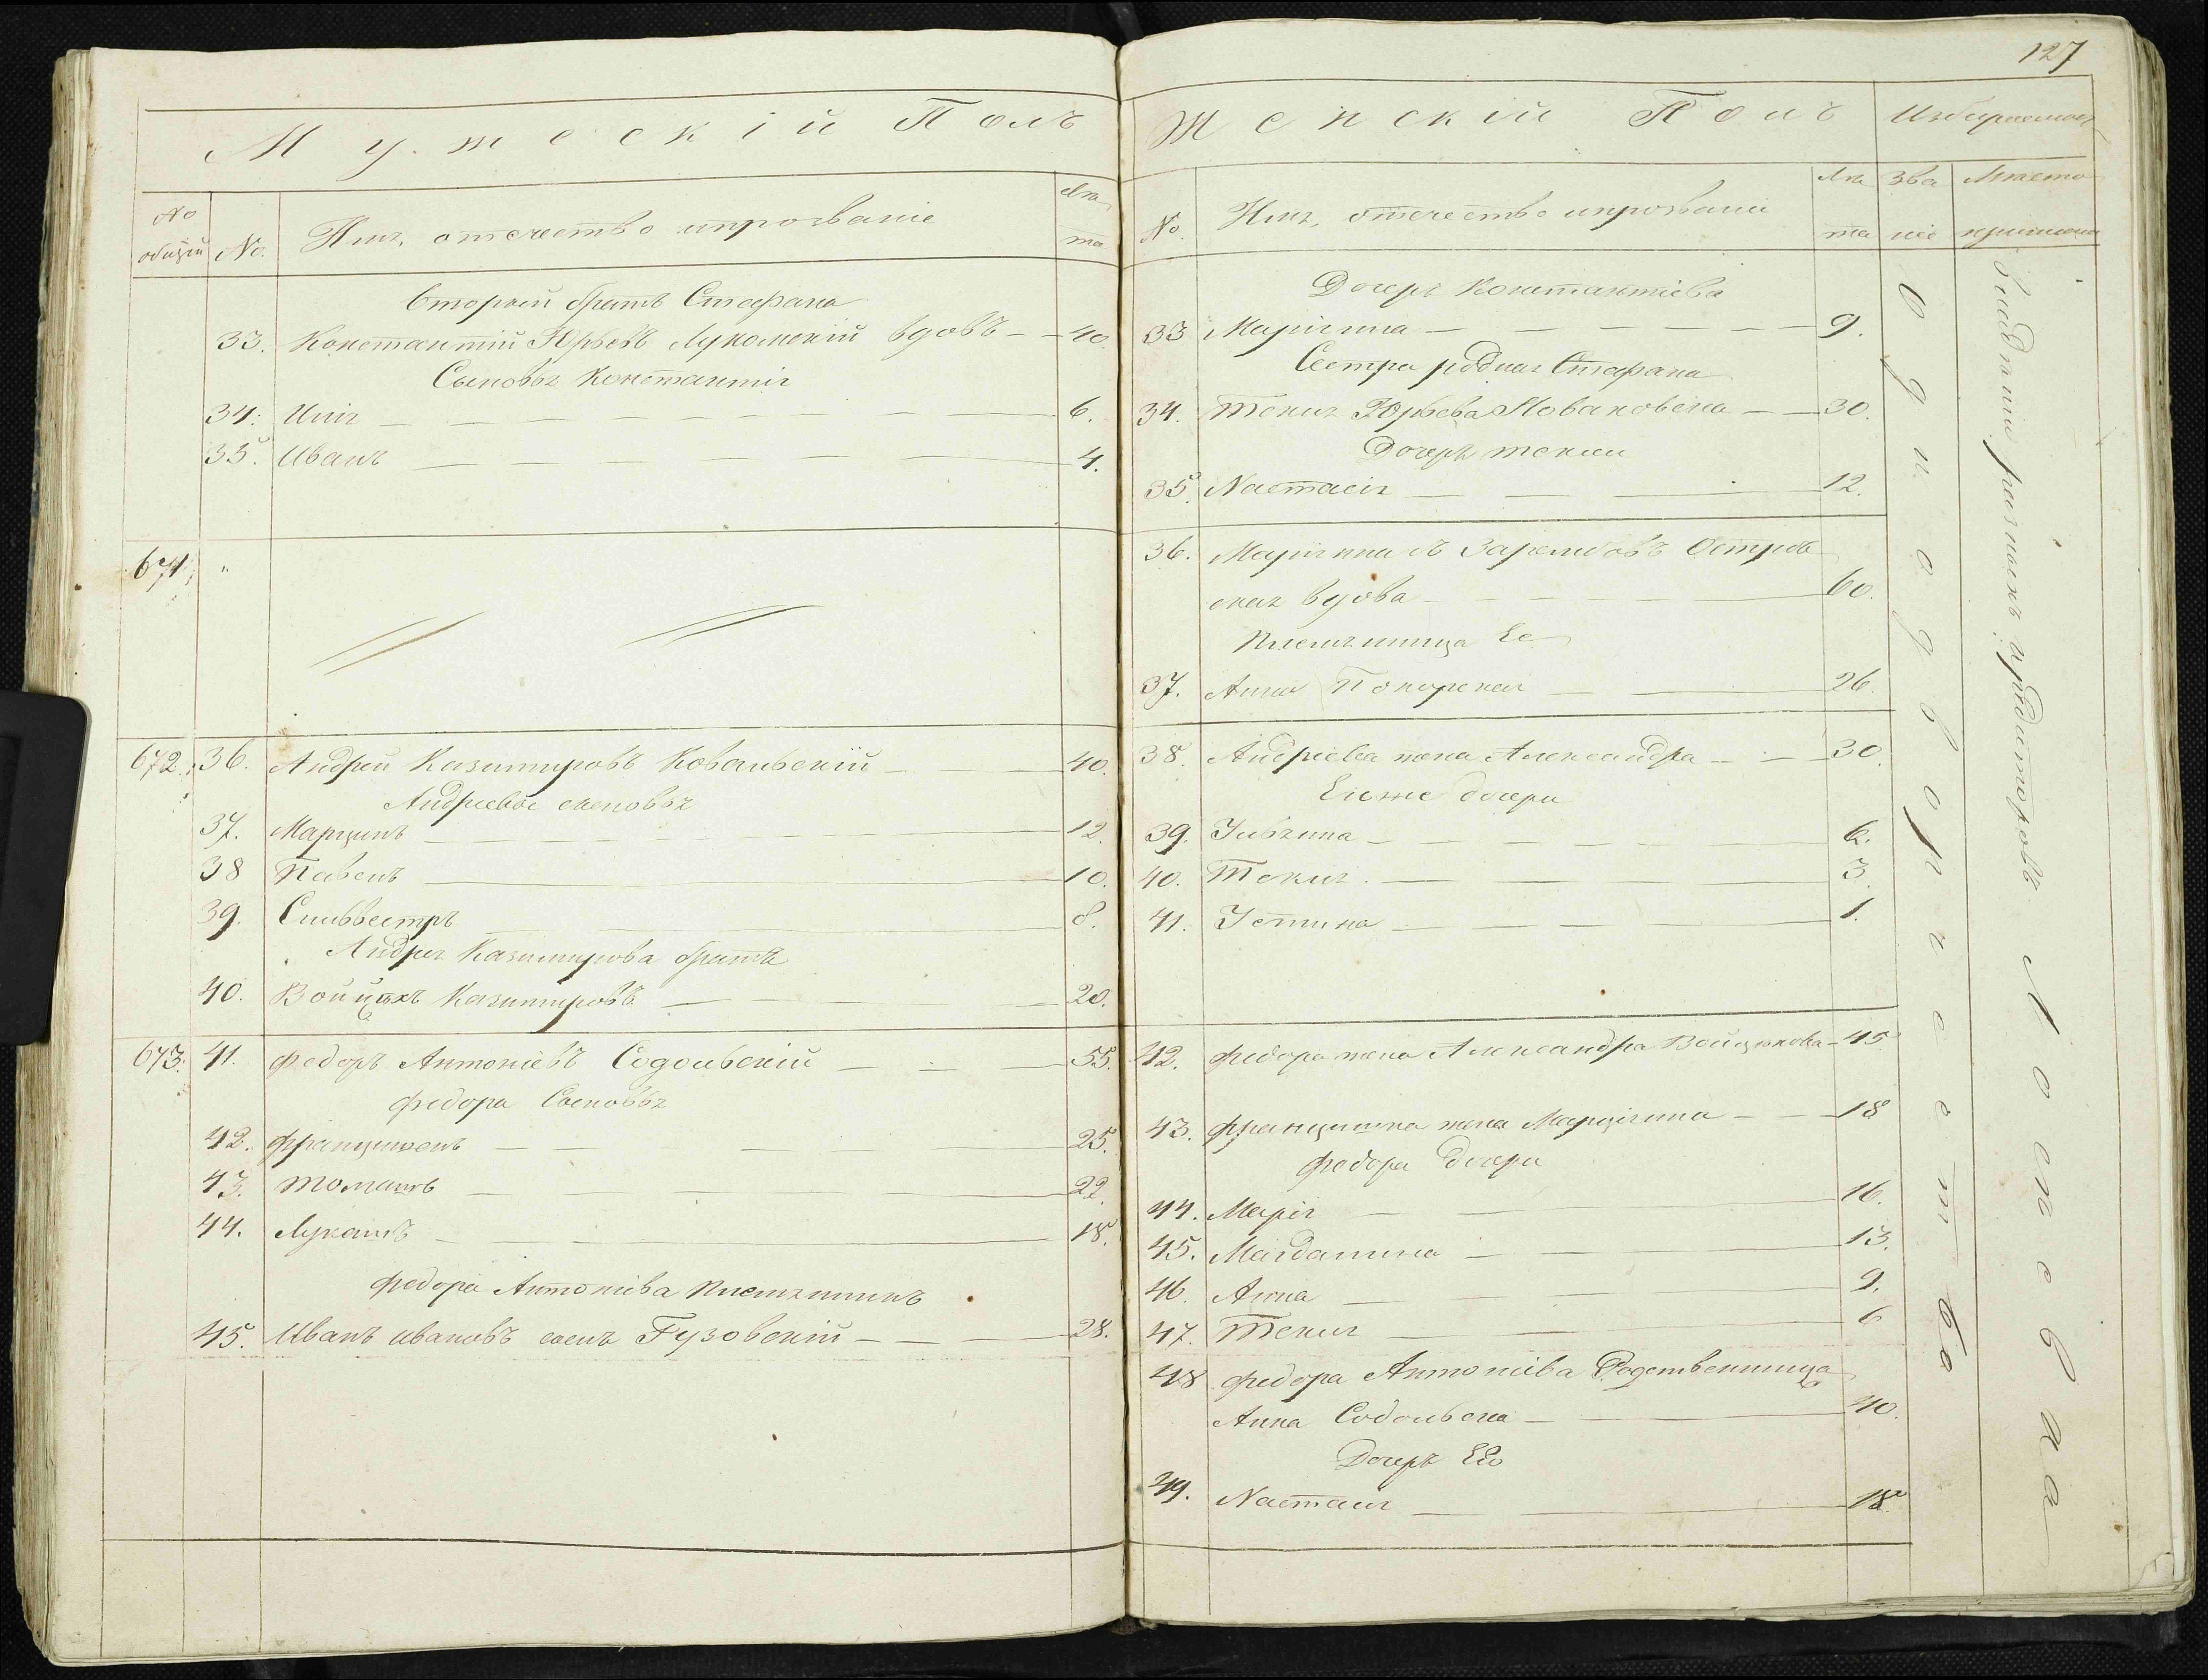 Мужескій Полъ
№ общій
№.
Имя, отечество и прозваніе
Лѣта
Вторый братъ Стефана
33. Константій Юрьевъ Лукомскій вдовъ — 40.
Сыновья Константія
34. Илія — 6.
35. Иванъ — 4.
671. "
672. 36. Андрей Казимировъ Ковальскій — 40.
Андріевы сыновья
37. Марцинъ — 12.
38 Павелъ — 10.
39. Сильвестръ — 8.
Андрея Казимирова братъ
40. Войцѣхъ Казимировъ — 20.
673. 41. Федоръ Антоніевъ Содольскій — 55.
Федора Сыновья
42. Францишекъ — 25.
43. Томашъ — 22.
44. Лукашъ — 18.
Федора Антоніева племянникъ
45. Иванъ Ивановъ сынъ Гузовскій — 28.
127
Женскій Полъ
№.
Имя, отечество и прозваніе
Лѣта
Званіе
Дочерь Константіева
33 Маріянна — 9.
Сестра родная Стефана
34. Текля Юрьева — 30.
Дочерь Текли
35. Настасія — 12.
36. Маріянна съ Остров
ская вдова — 60.
Племянница Ее
37. Анна — 26.
38. Андріева жена Александра — 30.
Ихже дочери
39. Ульяна — 6.
40. Текля — 3.
41. Устина — 1.
42. Федора жена Александра — 45
43. Францишка жена Маріянна — 18
Федора Дочери
44. Марія — 16.
45. Магдалина — 13.
46. Анна — 9.
47. Текля — 6
48 Федора Антоніева Родственница
Анна Содольска — 40.
Дочерь Ею
49. Настасія — 18.
Однодворческое